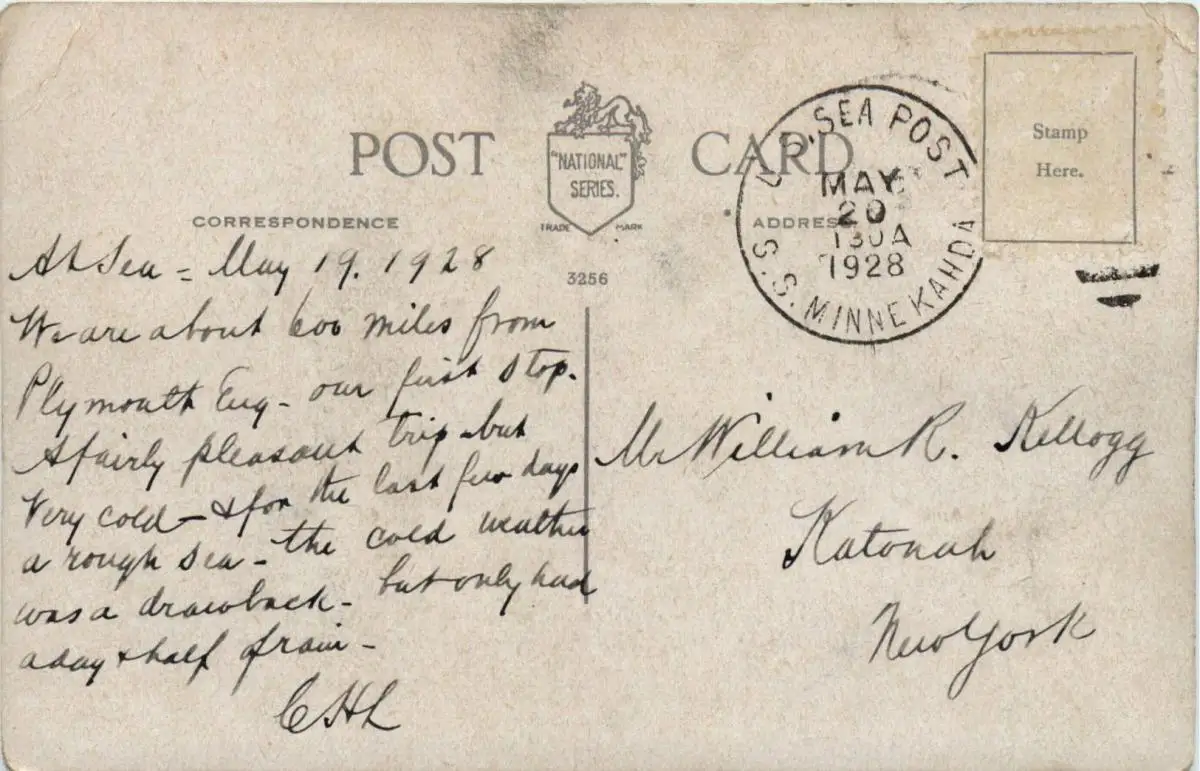 POST CARD
"NATIONAL"
SERIES.
TRADE MARK
CORRESPONDENCE
ADDRESS
3256
Stamp
Here.
U.S. SEA POST
MAY
20
130A
1928
S.S. MINNEKAHDA
At Sea = May 19. 1928
We are about 600 miles from
Plymouth Eng - our first stop.
A fairly pleasant trip - but
Very cold - & for the last few days
a rough sea - the cold weather
was a drawback - but only had
a day & half of rain -
CHL
Mr William R. Kellogg
Katonah
New York